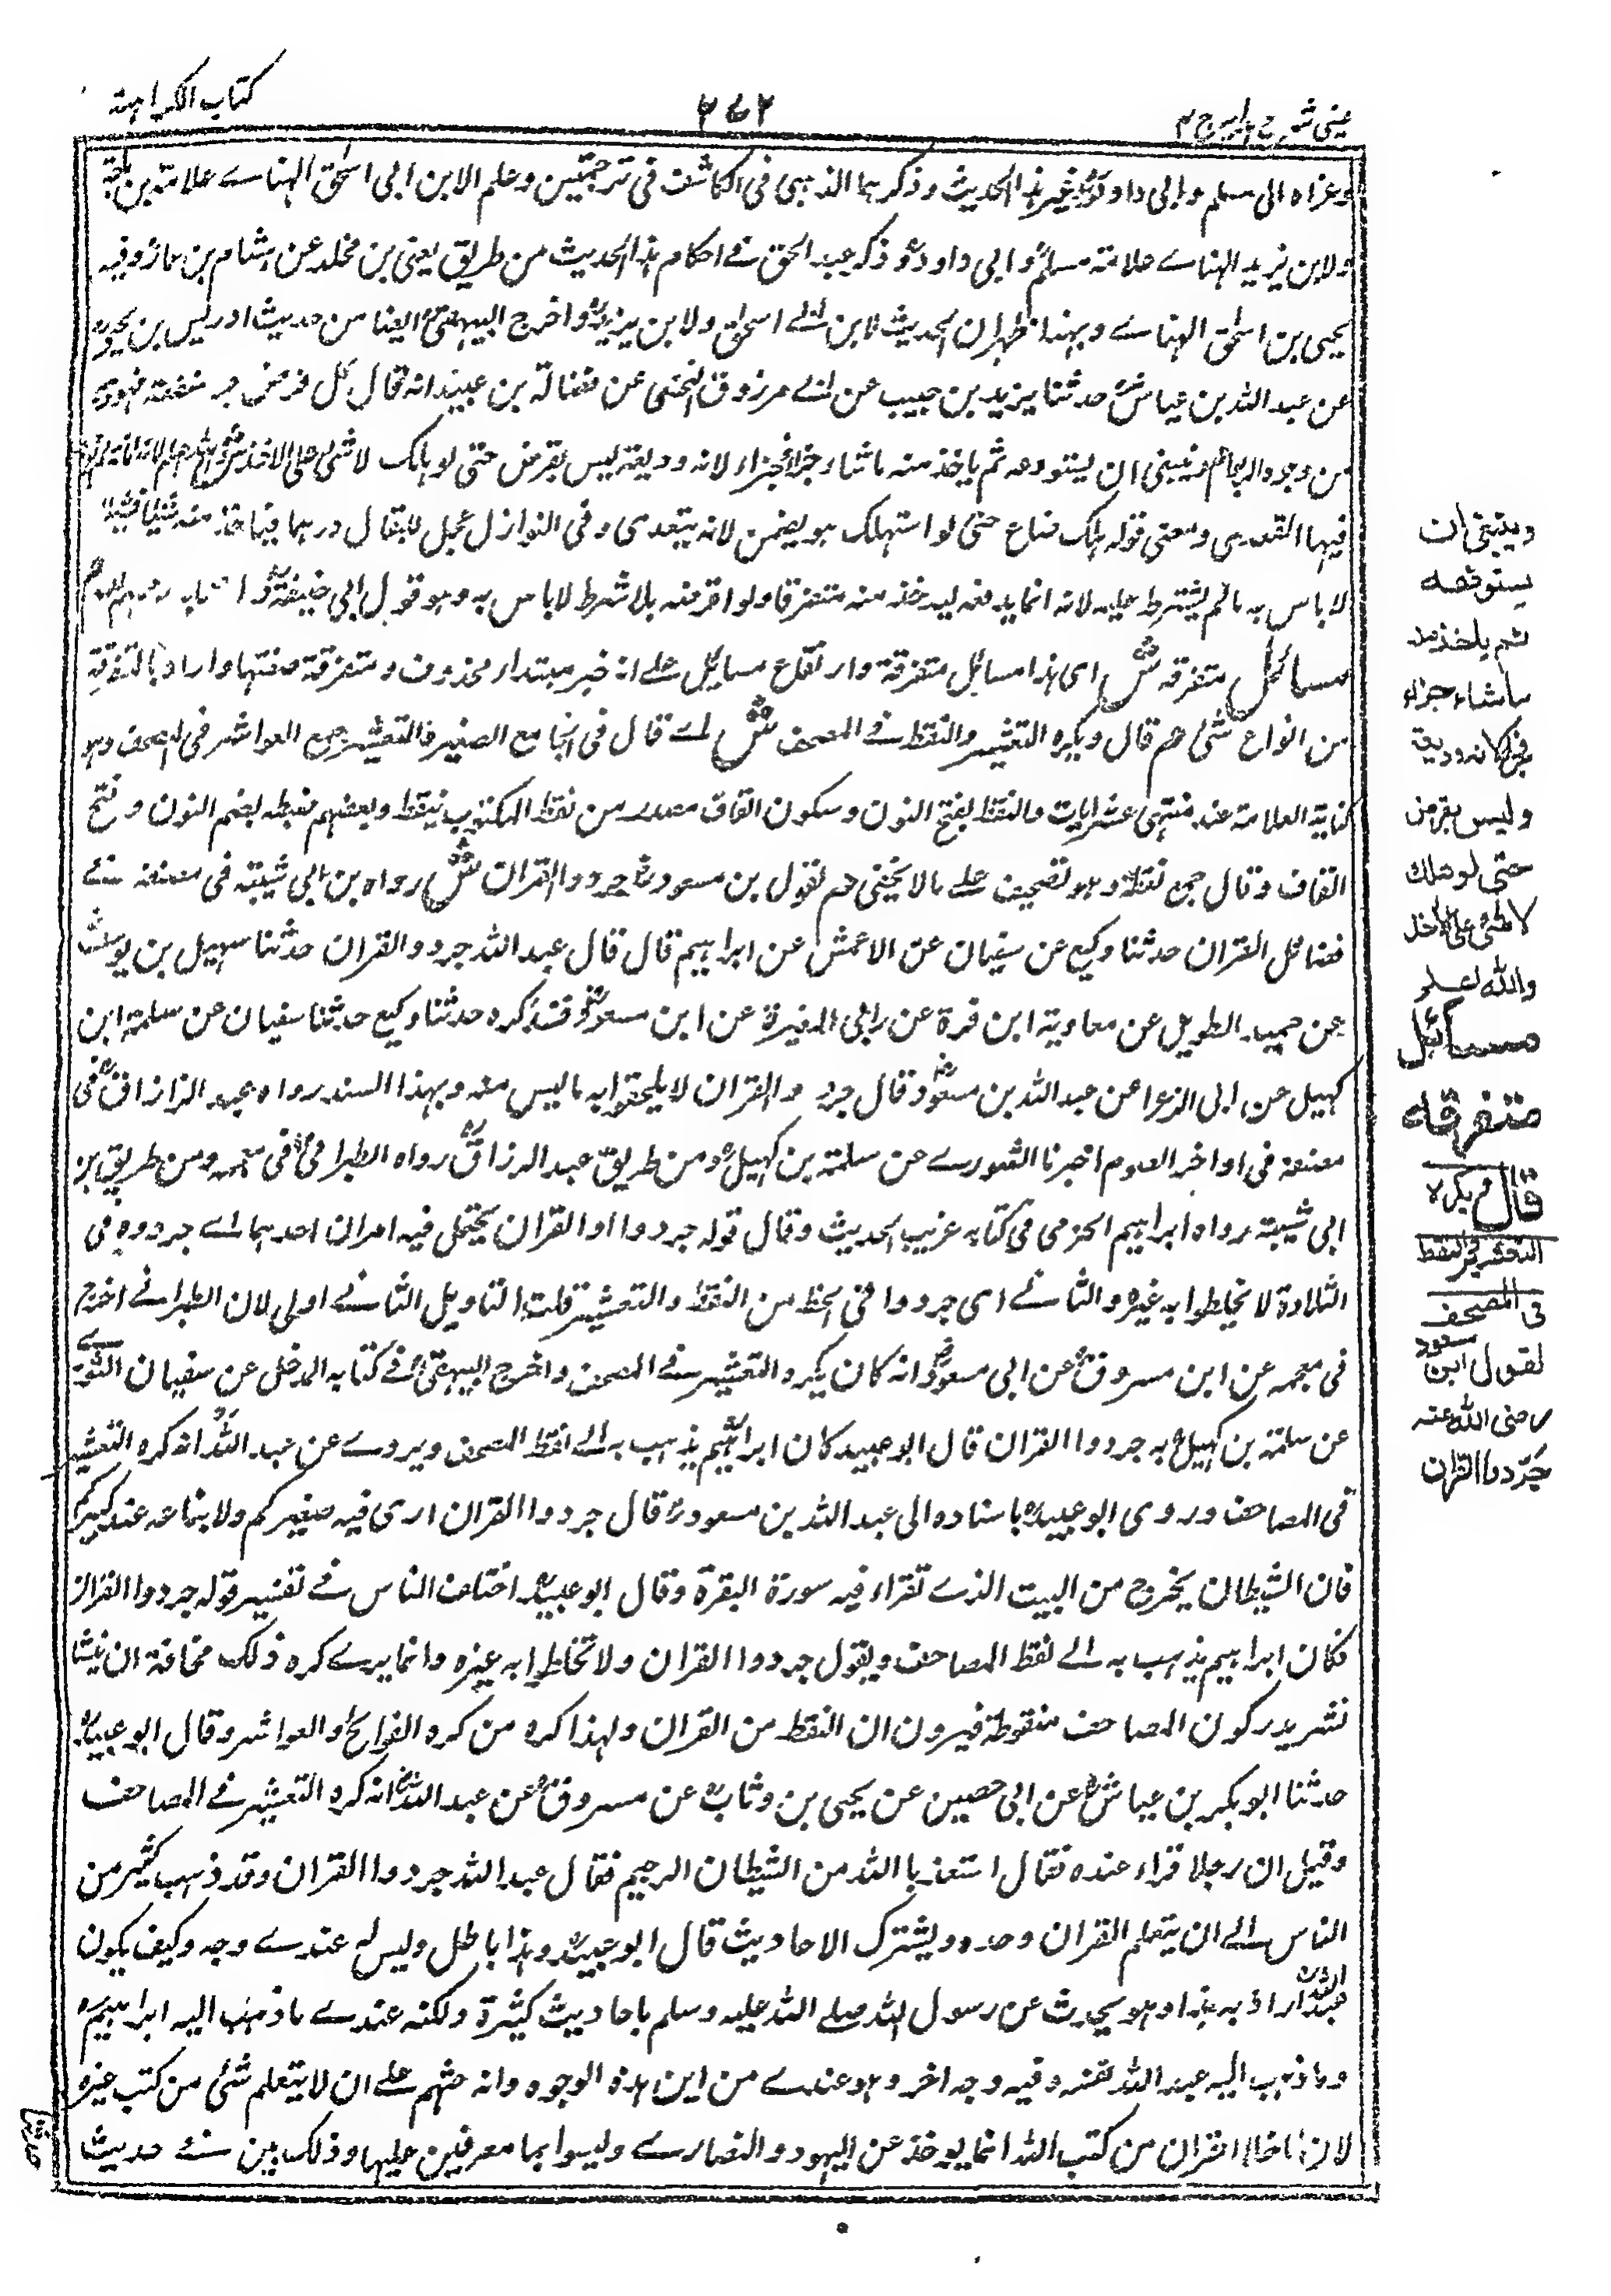 كتاب الكراهية
٢٧٢
عيني شرح هداية ج ٤
وعزاه الى مسلم وابى داود غير هذا الحديث وذكرهما الذهبى فى الكاشف فى ترجمتين وعلم الابن ابى اسحق الهنائے علامة بن ماجة
ولابن يزيد الهنائے علامة مسلم وابى داود وذكر عبد الحق فے احكام هذا الحديث من طريق بن مخلد عن هشام بن عمار وفيه
يحيى بن اسحق الهنائے وبهذا ظهر ان الحديث لابن ابے اسحق ولا بن يزيد واخرج البيهقى ايضا من حديث ادريس بن يحيى
عن عبد الله بن عياش حدثنا يزيد بن حبيب عن ابے مرزوق عن فضالة بن عبيد انه قال كل قرض جر منفعة فهو وجه
من وجوه الربا م وينبغى ان يستودعه ثم ياخذ منه ماشاء جزاء فجزاء لانه وديعة ليس بقرض حتى لو هلك لا شئ على الاخذ
فيها التعدى ومعنى قوله هلك ضاع حتى لو استهلك هو يضمن لانه يتعدى وفى النوازل
لا باس به مالم يشترط عليه لانه انما يدفعه لياخذ منه متفرقا ولو اقرضه بلا شرط لا باس به وهو قول ابى حنيفة
مسائل متفرقة ش اى هذا مسائل متفرقة وارتفاع مسائل علے انه خبر مبتداء محذوف ومتفرقة صفتها واراد بالتفرقة
من انواع شتى م قال ويكره التعشير والنقط فے المصحف ش اے قال فى الجامع الصغير فالتعشير جمع العواشر فى المصحف وهو
كتابة العلامة عند منتهى عشر ايات والنقط بفتح النون وسكون القاف مصدر من نقط المكتوب ينقط وبعضهم ضبطه بضم النون وفتح
القاف وقال جمع نقطة وهو تصحيف علے مالا يخفى م لقول بن مسعود جردوا القران ش رواه بن ابى شيبة فى مصنفه فے
فضائل القران حدثنا وكيع عن سفيان عن الاعمش عن ابراهيم قال قال عبد الله جردوا القران حدثنا سهيل بن يوسف
عن حميد الطويل عن معاوية ابن قرة عن ابى المغيرة عن ابن مسعود فذكره حدثنا وكيع حدثنا سفيان عن سلمة ابن
كهيل عن ابى الزعرا عن عبد الله بن مسعود قال جردوا القران لا يلحقوا به ما ليس منه وبهذا السند رواه عبد الرازاق فى
مصنفه فى اواخر الصوم اخبرنا الثورے عن سلمة بن كهيل ومن طريق عبد الرزاق رواه الطبرانى فى معجمه ومن طريق بن
ابى شيبة رواه ابراهيم الحربى فى كتابه غريب الحديث وقال قوله جردوا القران يحتمل فيه امران احدهما اے جردوه فى
التلاوة لا تخلطوا به غيره والثانے اى جردوا فى الخط من النقط والتعشير قلت التاويل الثانے اولى لان الطبرانے اخرج
فى معجمه عن ابن مسروق عن ابى مسعود انه كان يكره التعشير فے المصحف واخرج البيهقى فے كتابه المدخل عن سفيان الثورے
عن سلمة بن كهيل به جردوا القران قال ابو عبيد كان ابراهيم يذهب به الے نقط المصحف ويروے عن عبد الله انه كره التعشير
فى المصاحف وروى ابو عبيد باسناده الى عبد الله بن مسعود قال جردوا القران فيه صغيركم
فان الشيطان يخرج من البيت الذے تقراء فيه سورة البقرة وقال ابو عبيد اختلف الناس فے تفسير قوله جردوا القران
فكان ابراهيم يذهب به الے نقط المصاحف ويقول جردوا القران ولا تخلطوا به غيره وانما يرے كره ذلك مخافة ان ينشا
نشو يدركون المصاحف منقوطة فيرون ان النقط من القران ولهذا كره من كره الفواتح والعواشر وقال ابو عبيد
حدثنا ابو بكر بن عياش عن ابى حصين عن يحيى بن وثاب عن مسروق عن عبد الله انه كره التعشير فے المصاحف
وقيل ان رجلا قراء عنده فقال استعذ بالله من الشيطان الرجيم فقال عبد الله جردوا القران وقد ذهب كثير من
الناس الے ان يتعلم القران وحده ويشترك الاحاديث قال ابو عبيد وهذا باطل وليس له عندے وجه وكيف يكون
عبد الله اراد به هذا وهو يحدث عن رسول الله صلے الله عليه وسلم باحاديث كثيرة ولكنه عندے ما ذهب اليه ابراهيم
وما ذهب اليه عبد الله نفسه وفيه وجه اخر وهو عندے من ابين هذه الوجوه وانه حثهم علے ان لا يتعلم شئ من كتب غيره
لان ما خلا القران من كتب الله انما يوخذ عن اليهود والنصارے وليسوا بمامونين عليها وذلك بين فے حديث
وينبغى ان
يستودعه
ثم ياخذ منه
ماشاء جزاء
فجزاء لانه وديعة
وليس بقرض
حتى لو هلك
لا شئ على الاخذ
والله اعلم
مسائل
متفرقة
قال ويكره
التعشير والنقط
فى المصحف
لقول ابن مسعود
رضى الله عنه
جردوا القران
حدثنا